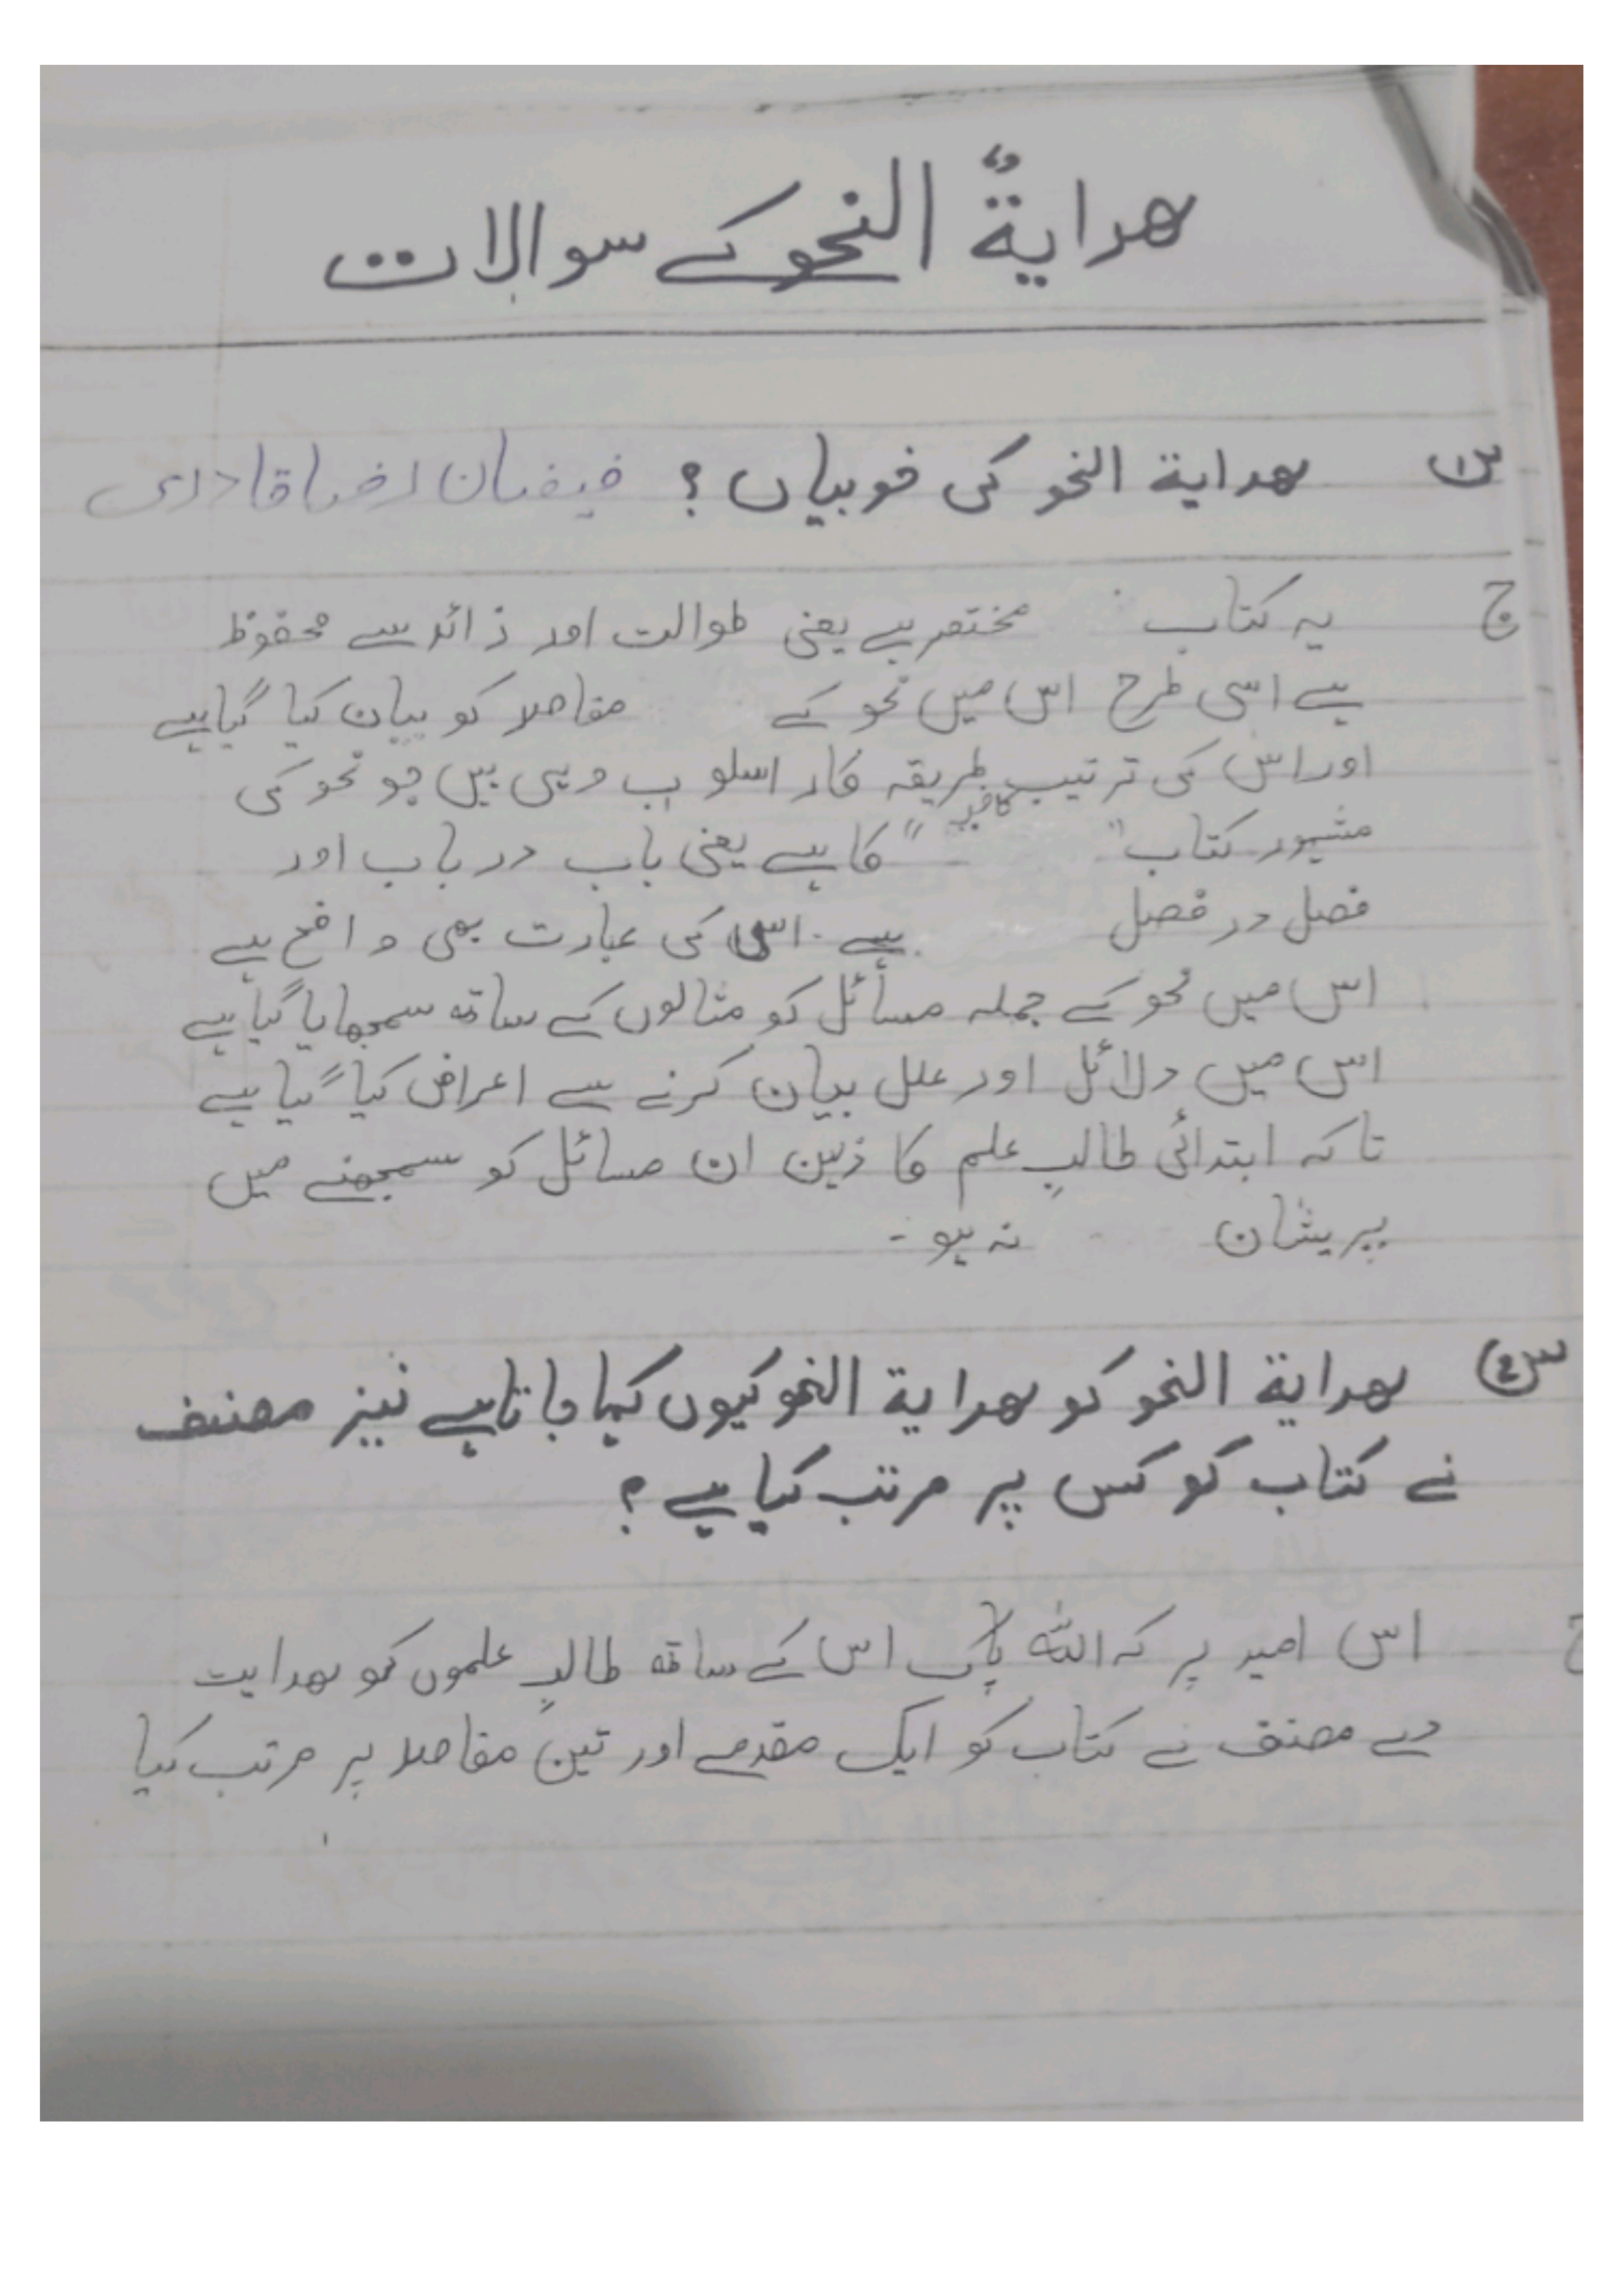 ھدایۃُ النحو کے سوالات
س۱ ھدایۃ النحو کی خوبیاں؟ فیضان رضا قادری
ج یہ کتاب مختصر ہے یعنی طوالت اور زائد سے محفوظ
ہے اسی طرح اس میں نحو کے مقاصد کو بیان کیا گیا ہے
اور اس کی ترتیب طریقہ کار اسلوب وہی ہیں جو نحو کی
مشہور کتاب "کافیہ" کا ہے یعنی باب در باب اور
فصل در فصل ہے۔ اس کی عبارت بھی واضح ہے
اس میں نحو کے جملہ مسائل کو مثالوں کے ساتھ سمجھایا گیا ہے
اس میں دلائل اور علل بیان کرنے سے اعراض کیا گیا ہے
تاکہ ابتدائی طالبِ علم کا ذہن ان مسائل کو سمجھنے میں
پریشان نہ ہو۔
س۲ ھدایۃ النحو کو ھدایۃ النحو کیوں کہا جاتا ہے نیز مصنف
نے کتاب کو کس پر مرتب کیا ہے؟
ج اس امید پر کہ اللہ پاک اس کے ساتھ طالبِ علموں کو ھدایت
دے مصنف نے کتاب کو ایک مقدمے اور تین مقاصد پر مرتب کیا